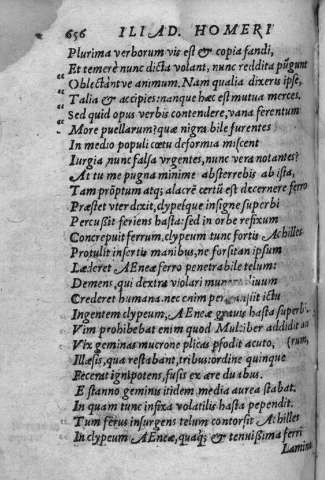 656 ILIAD. HOMERI
Plurima verborum vis est & copia fandi,
Et temerè nunc dicta volant, nunc reddita pũgunt
Oblectántve animum. Nam qualia dixeris ipse,
Talia & accipies: nanque hæc est mutua merces.
Sed quid opus verbis contendere, vana ferentum
More puellarum? quæ nigra bile furentes
In medio populi cœtu deformia miscent
Iurgia nunc falsa vrgentes, nunc vera notantes?
At tu me pugna minime absterrebis ab ista,
Tam prõptum atq; alacrẽ certũ est decernere ferro
Præstet vter dixit, clypeíque insigne superbi
Percußit feriens hasta: sed in orbe refixum
Concrepuit ferrum, clypeum tunc fortis Achilles
Protulit insertis manibus, ne forsitan ipsum
Læderet AEneæ ferro penetrabile telum:
Demens, qui dextra violari munera diuum
Crederet humana. nec enim perrupit ictu
Ingentem clypeum, AEneæ grauis hasta superbi.
Vim prohibebat enim quod Mulciber addidit au
Vix geminas mucrone plicas pfodit acuto, (rum,
Illæsis, quæ restabant, tribus: ordine quinque
Fecerat ignipotens, fusis ex ære duabus.
E stanno geminis itidem media aurea stabat.
In quam tunc infixa volatilis hasta pependit.
Tum ferus insurgens telum contorsit Achilles
In clypeum AEneæ, quàq; & tenuißima ferri
Lamina